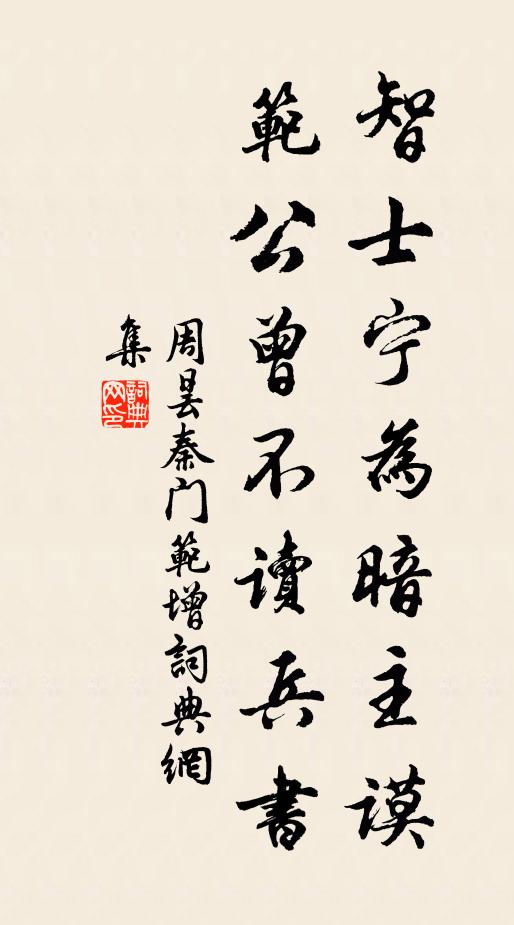 智士宁為暗主謨
範公曾不讀兵書
周曇秦門範增詞典網
集
詞典
网印